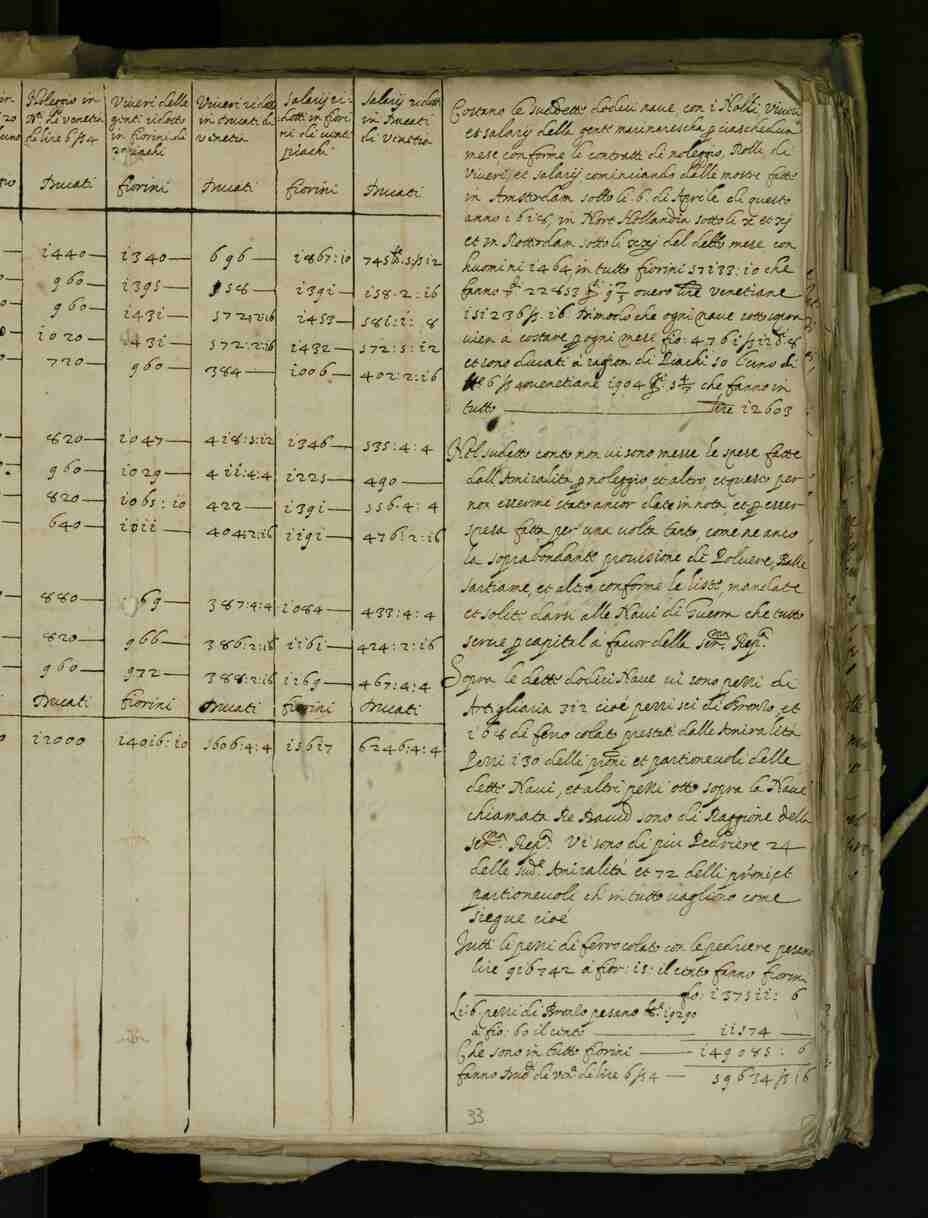 Noleggio in Viveri delle Viveri ridotti Salarij ri- Salarij ridotti
di Venetia genti ridotto in Ducati di dotti in fiori in Ducati
de lire 6 ß 4 in fiorini di Venetia ni di venti di Venetia
piachi
Ducati fiorini Ducati fiorini Ducati
1440 1340 696 1867:10
960 1395 558 1391 158-2:16
960 1431 1453 581:1:8
1020 1431 572:2:16 1432 572:5:12
720 960 384 1006 402:2:16
820 1047 418:5:12 1346 535:4:4
960 1029 411:4:4 1225 490
820 1065:10 422 1391 556:4:4
640 1011 404:2:16 1191 476:2:16
880 69 387:4:4 1084 433:4:4
820 966 386:2:16 1161 424:2:16
960 972 388:2:16 1169 467:4:4
Ducati fiorini Ducati fiorini Ducati
12000 14016:10 5606:4:4 15617 6246:4:4
Costano le suddette dodeci nave, con i Nolli, Viveri
et salarij della gente marinarescha p ciascheduno
mese, conforme li contratti di noleggio, Rolli di
Viveri, et salarij cominciando dalle mostre fatte
in Amsterdam sotto li 6. di Aprile di questo
anno 1618, in Nort Hollandia sotto li x et xj
et in Rotterdam sotto li del detto mese con
huomini 1464 in tutto fiorini 57133:10 che
fanno 22853 overo lire venetiane
151236 ß:16 Di modo che ogni nave sotto sopra
vien à costare p ogni mese fio: 4761 ß 12 :8
et sono ducati à ragion di Piachi 50 l'uno di
6 ß 4 venetiane 1904 che fanno in
tutto lire 12603
Nel sudetto conto non vi sono messe le spese fatte
dall'Amiralità p noleggio et altro, et questo per
non essere stato ancor dato in nota, et p esser
spesa fatta per una volta tanto, come ne anco
la soprabondante provisione di Polvere, Balle
sartiame, et altro, conforme le liste, mandate
et solite darsi alle Navi di Guerra che tutto
serve p capital à favor della Ser.ma Rep.ca
Sopra le dette dodeci Nave vi sono pezzi di
Artigliaria 312 cioè pezzi sei di Bronzo, et
168 di ferro colato prestati dalle Amiralità
Pezzi 130 delli et partionevoli delle
dette Navi, et altri pezzi otto sopra la Nave
chiamata Re David sono di Raggione della
Ser.ma Rep.ca Vi sono di piu Pedriere 24
delle Sud.e Amiralità et 72 delli et
partionevoli ch in tutto vagliono come
siegue cioè
Tutti li pezzi di ferro colato con le pedriere pesano
lire 916742 à fior: 15: il cento fanno fiorin
fio: 137511: 6
Li 6. pezzi di Bronzo pesano 19290
à fio: 60 il cento 11574
Che sono in tutto fiorini 149085: 6
fanno Duc.i de Ven.a de lire 6 ß 4 59634 ß 16
33